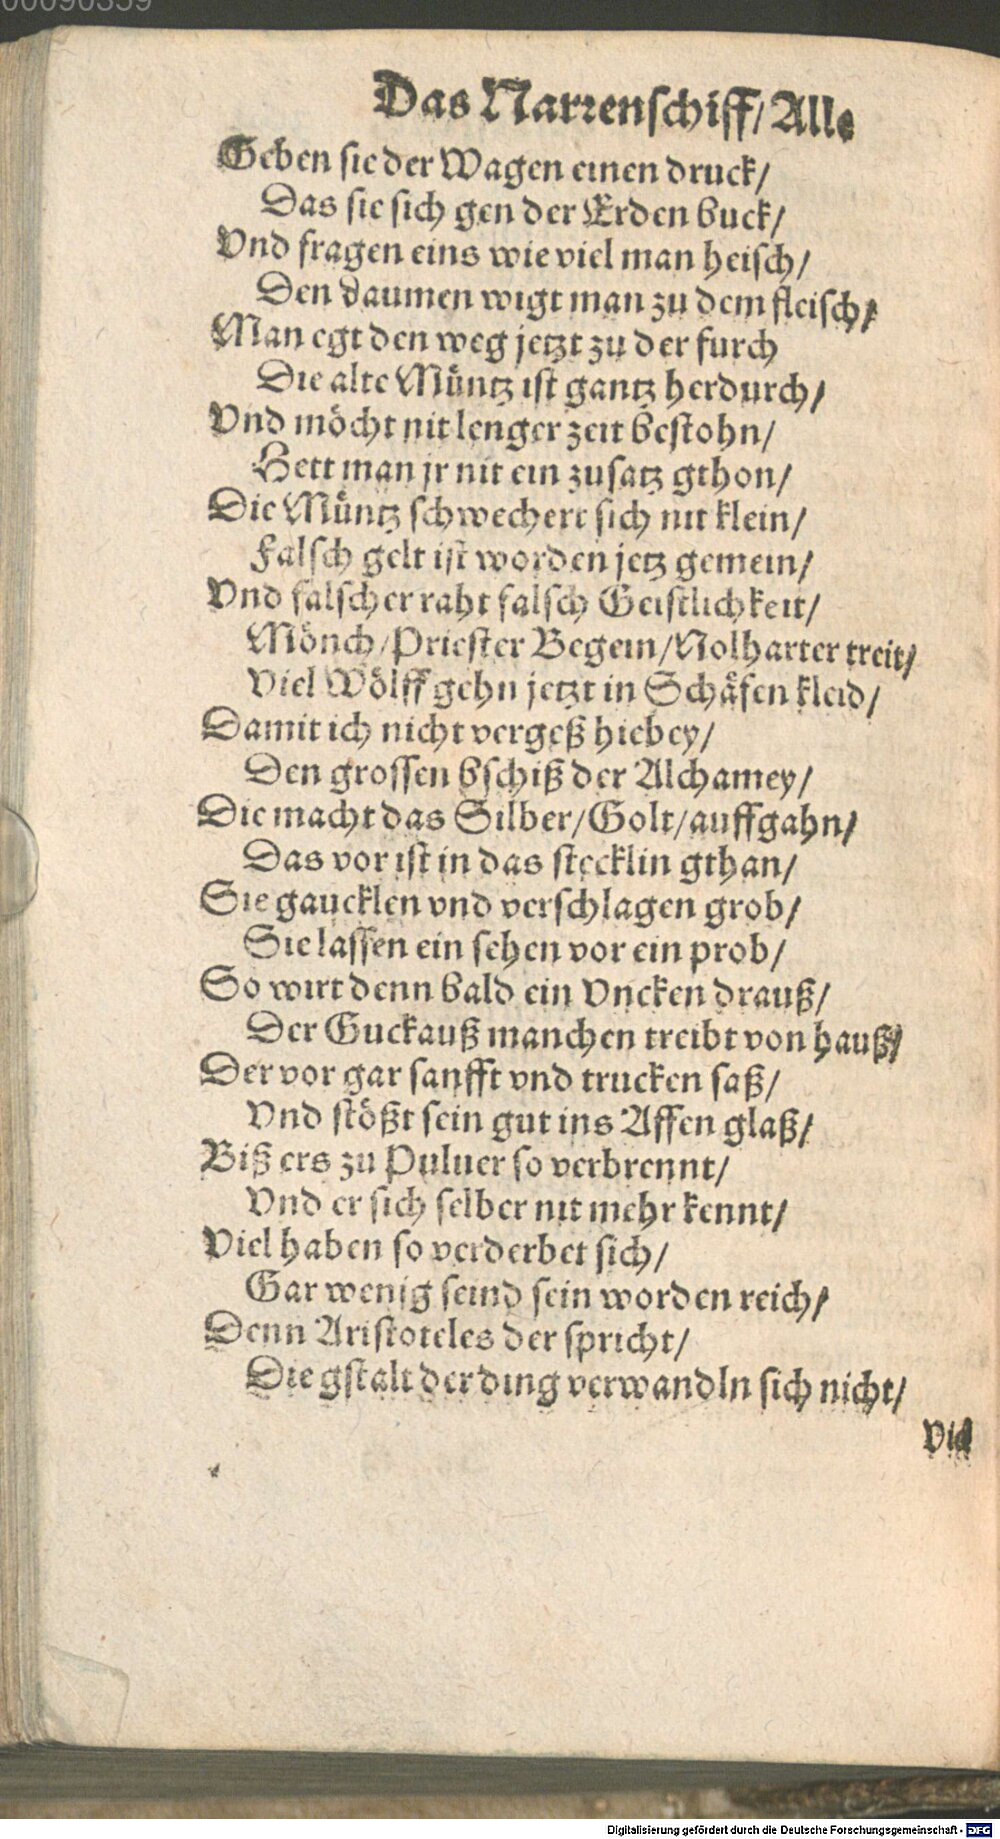 00090359
Das Narrenschiff/ Alle
Geben sie der Wagen einen druck/
Das sie sich gen der Erden buck/
Vnd fragen eins wie viel man heisch/
Den daumen wigt man zu dem fleisch/
Man egt den weg jetzt zu der furch
Die alte Müntz ist gantz herdurch/
Vnd möcht nit lenger zeit bestohn/
Hett man jr nit ein zusatz gthon/
Die Müntz schwechert sich nit klein/
Falsch gelt ist worden jetz gemein/
Vnd falscher raht falsch Geistlichkeit/
Mönch/ Priester Begein/ Nolharter treit/
Viel Wölff gehn jetzt in Schäfen kleid/
Damit ich nicht vergeß hiebey/
Den grossen bschiß der Alchamey/
Die macht das Silber/ Golt/ auffgahn/
Das vor ist in das stecklin gthan/
Sie gaucklen vnd verschlagen grob/
Sie lassen ein sehen vor ein prob/
So wirt denn bald ein Vncken drauß/
Der Guckauß manchen treibt von hauß/
Der vor gar sanfft vnd trucken saß/
Vnd stößt sein gut ins Affen glaß/
Biß ers zu Puluer so verbrennt/
Vnd er sich selber nit mehr kennt/
Viel haben so verderbet sich/
Gar wenig seind sein worden reich/
Denn Aristoteles der spricht/
Die gstalt der ding verwandln sich nicht/
Viel
Digitalisierung gefördert durch die Deutsche Forschungsgemeinschaft - DFG